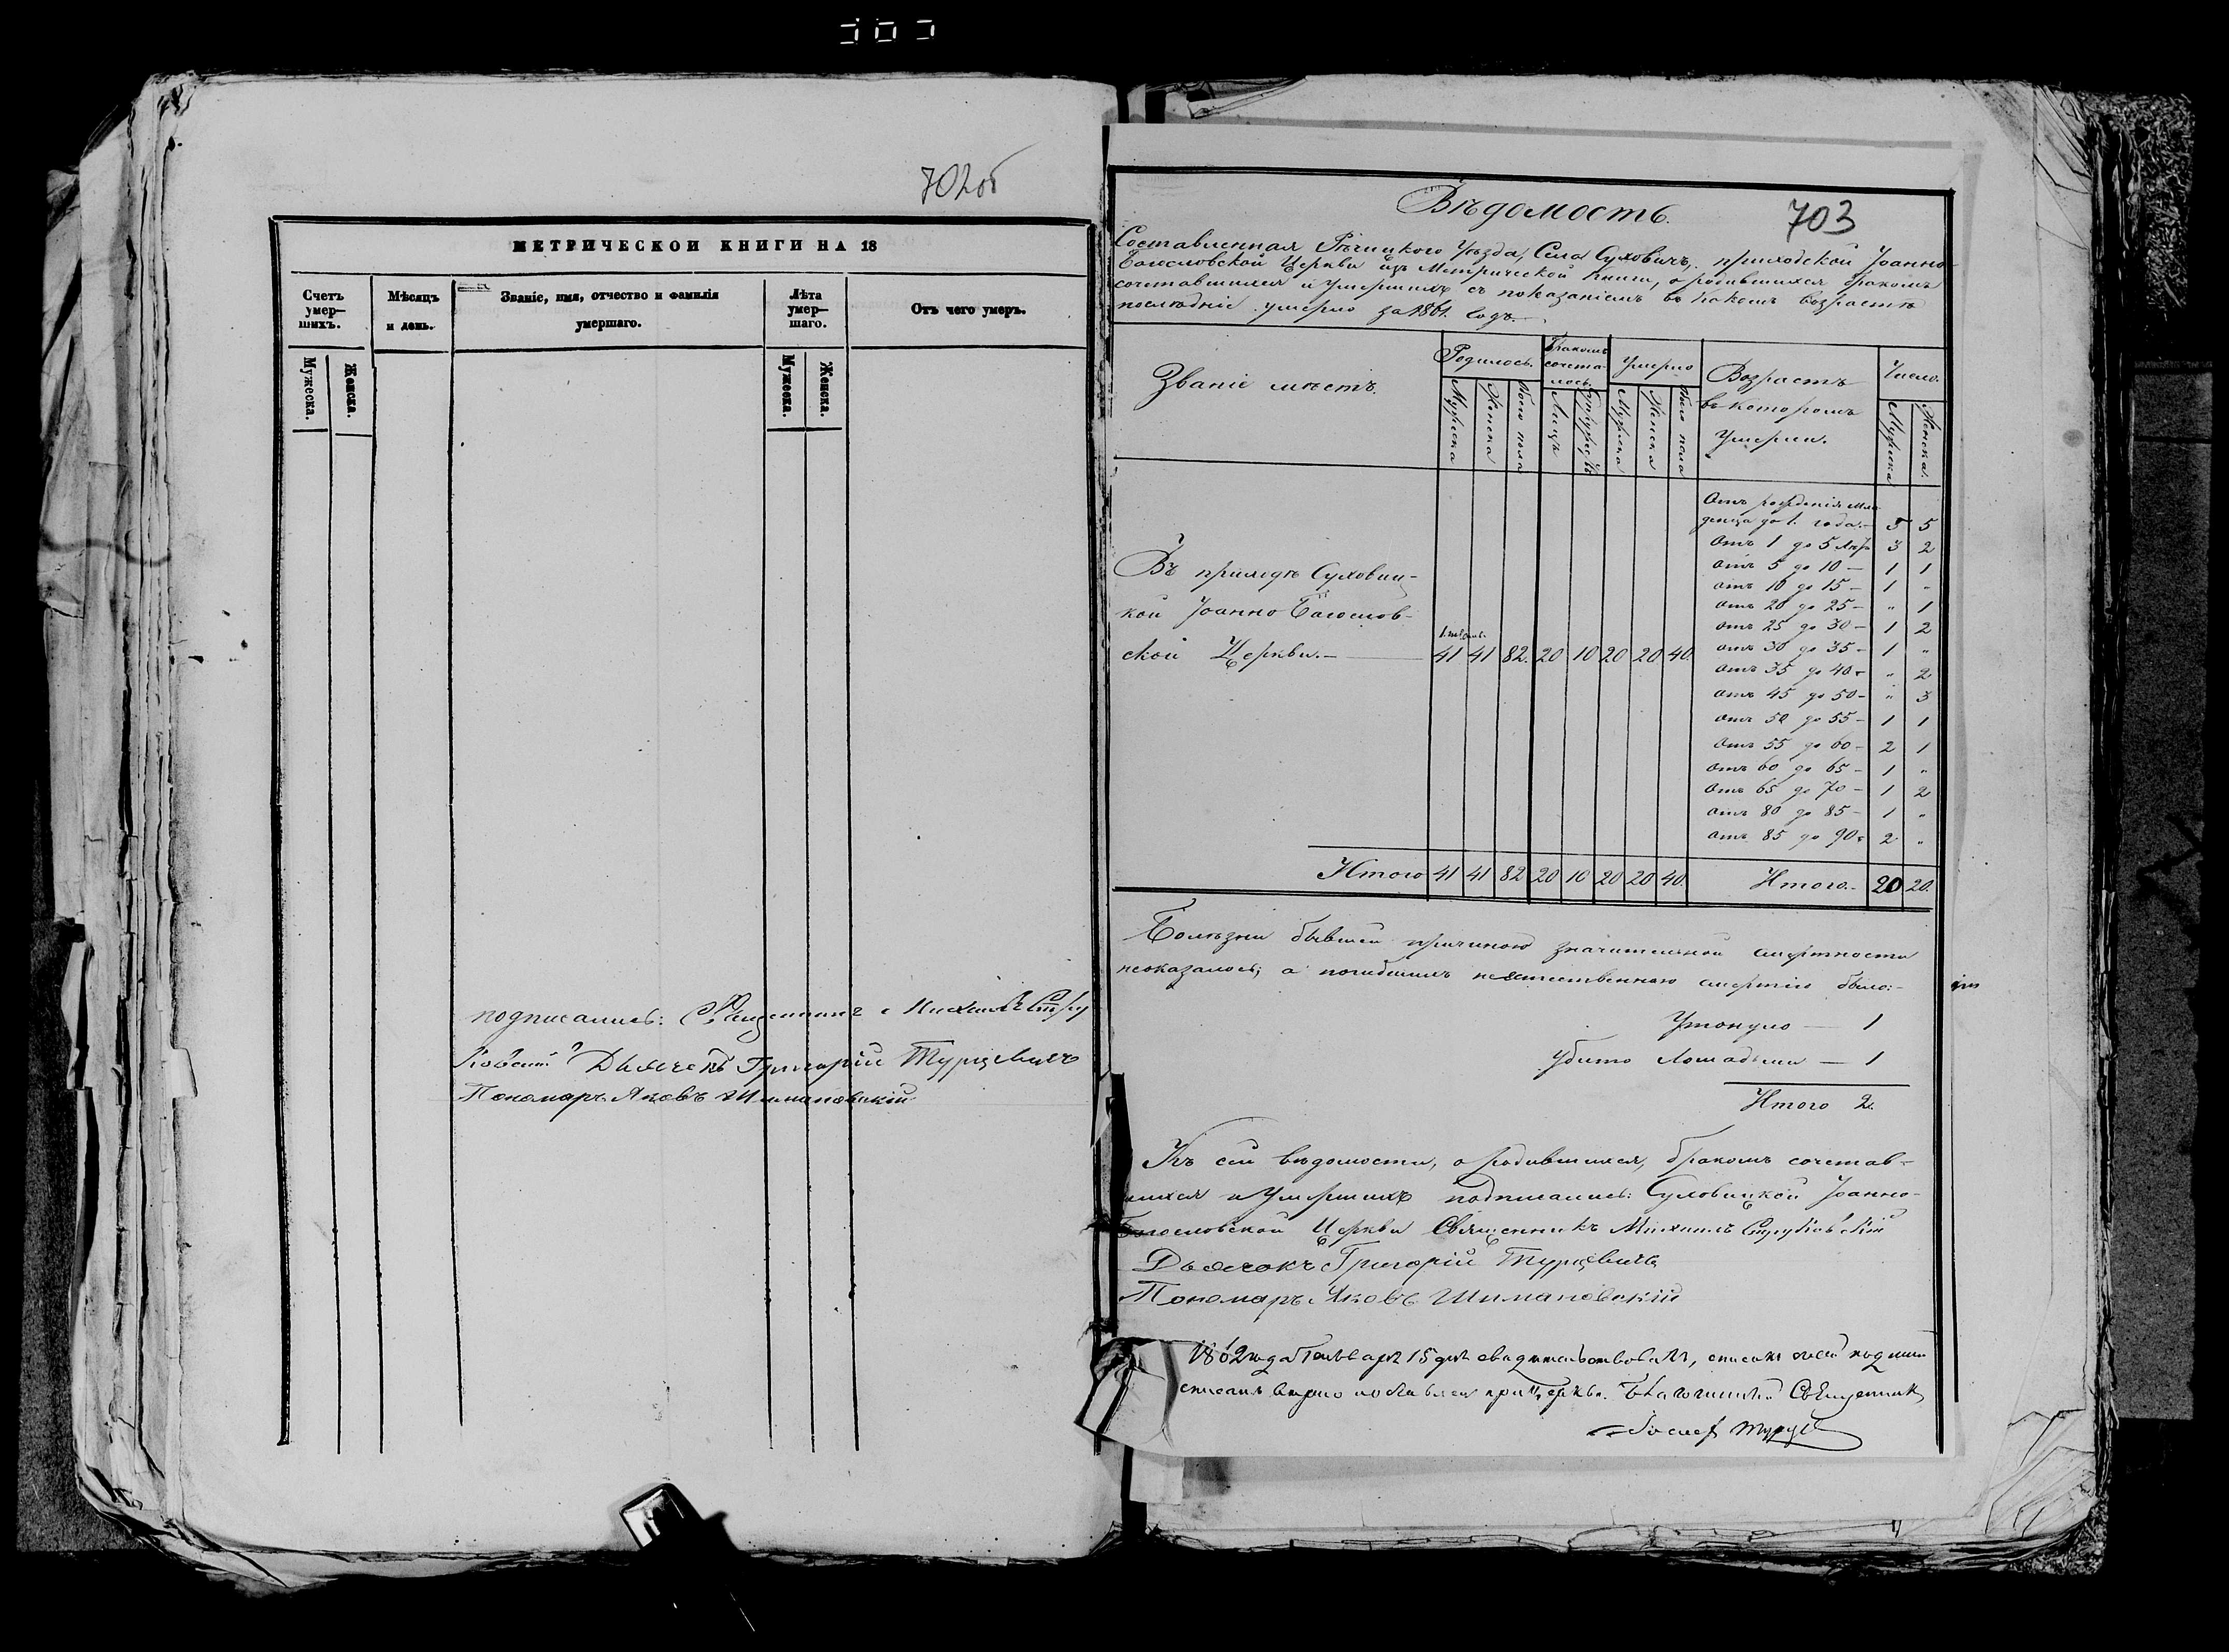 702об
МЕТРИЧЕСКОЙ КНИГИ НА 18
Счетъ умер-шихъ.
Мѣсяцъ и день.
Званіе, имя, отчество и фамилія умершаго.
Лѣта умер-шаго.
Отъ чего умеръ.
Мужеска.
Женска.
Мужеска.
Женска.
подписались: Священникъ Михаилъ Стру
ковскій Дьячекъ Григорій Турцевичъ
Пономаръ Яковъ Шимановскій
703
Вѣдомость.
Составленная Рѣчицкого Уѣзда, Села Суховичъ, приходской Іоанно-
Богословской Церкви изъ Метрической Книги, о родившихся бракомъ
сочетавшихся и умершихъ съ показаніемъ въ какомъ возрастѣ
послѣдніе умерло за 1861. годъ.
Званіе мѣстъ.
Родилось.
Бракомъ сочета-лось.
Умерло
Возрастъ въ которомъ умерли.
Число.
Мужеска
Женска
Обоего пола
Лицъ
Супружествъ
Мужска
Женска
Обоего пола
Мужеска
Женска.
Отъ рожденія мла
денца до 1. года.- 5 5
Отъ 1 до 5 лѣтъ 3 2
Отъ 5 до 10 - 1 1
Отъ 10 до 15 - 1 "
Отъ 20 до 25 - " 1
Отъ 25 до 30 - 1 2
Отъ 30 до 35 - 1 "
Отъ 35 до 40 - " 2
Отъ 45 до 50 - " 3
Отъ 50 до 55 - 1 1
Отъ 55 до 60 - 2 1
Отъ 60 до 65 - 1 "
Отъ 65 до 70 - 1 2
Отъ 80 до 85 - 1 "
Отъ 85 до 90 - 2 "
Въ приходѣ Суховиц-
кой Іоанно Богослов-
ской Церкви.- 41 41 82. 20 10 20 20 40.
Итого 41 41 82 20 10 20 20 40. Итого.- 20 20.
Болѣзни бывшей причиною значительной смертности
неоказалось; а погибшихъ неестественною смертію было:-
Утонуло - 1
Убито Лошадьми - 1
Итого 2.
Къ сей вѣдомости, о родившихся, бракомъ сочетав-
шихся и Умершихъ подписались: Суховицкой Іоанно-
Богословской Церкви Священникъ Михаилъ Струковскій
Дьячокъ Григорій Турцевичъ
Пономаръ Яковъ Шимановскій
1862 года Генваря 15 дня свидетельствовалъ, списокъ
вѣрно при Церкви. Благочинный Священникъ